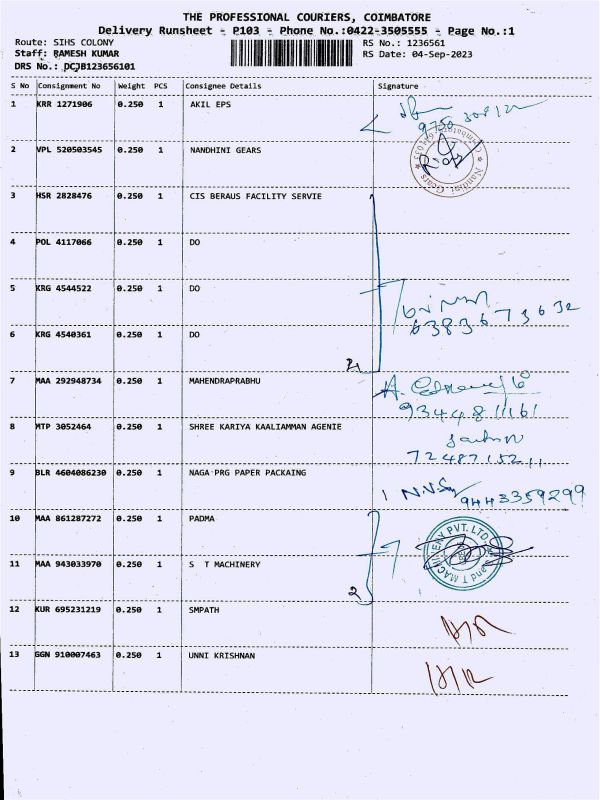 THE PROFESSIONAL COURIERS, COIMBATORE
Delivery Runsheet - P103 - Phone No.:0422-3505555 - Page No.:1
Route: SIHS COLONY RS No.: 1236561
Staff: RAMESH KUMAR RS Date: 04-Sep-2023
DRS No.: DCJB123656101
S No Consignment No Weight PCS Consignee Details Signature
1 KRR 1271906 0.250 1 AKIL EPS
2 VPL 520503545 0.250 1 NANDHINI GEARS
3 HSR 2828476 0.250 1 CIS BERAUS FACILITY SERVIE
4 POL 4117066 0.250 1 DO
5 KRG 4544522 0.250 1 DO
63836 73632
6 KRG 4540361 0.250 1 DO
7 MAA 292948734 0.250 1 MAHENDRAPRABHU
9344811161
8 MTP 3052464 0.250 1 SHREE KARIYA KAALIAMMAN AGENIE
7248715211
9 BLR 4604086230 0.250 1 NAGA PRG PAPER PACKAING
9443359299
10 MAA 861287272 0.250 1 PADMA
11 MAA 943033970 0.250 1 S T MACHINERY
2
12 KUR 695231219 0.250 1 SMPATH
13 GGN 910007463 0.250 1 UNNI KRISHNAN